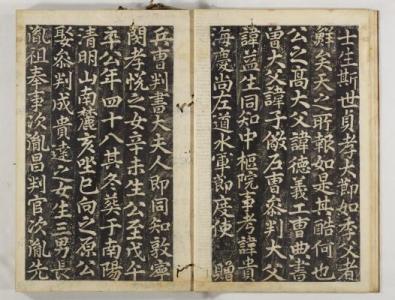 士生斯世負孝大節如季父者
鮮矣天之所報如是其酷何也
公之高大父諱德義工曹典書
曾大父諱子儆左曹叅判大父
諱益生同知中樞院事考諱貴
海慶尚左道水軍節度使贈
兵曹判書大夫人即同知敦寧
閔孝悅之女辛未生公至戊午
卒公年四十八其冬葬于南陽
清明山南麓亥坐巳向之原公
娶叅判成貴達之女生三男長
胤祖奉事次胤昌判官次胤先